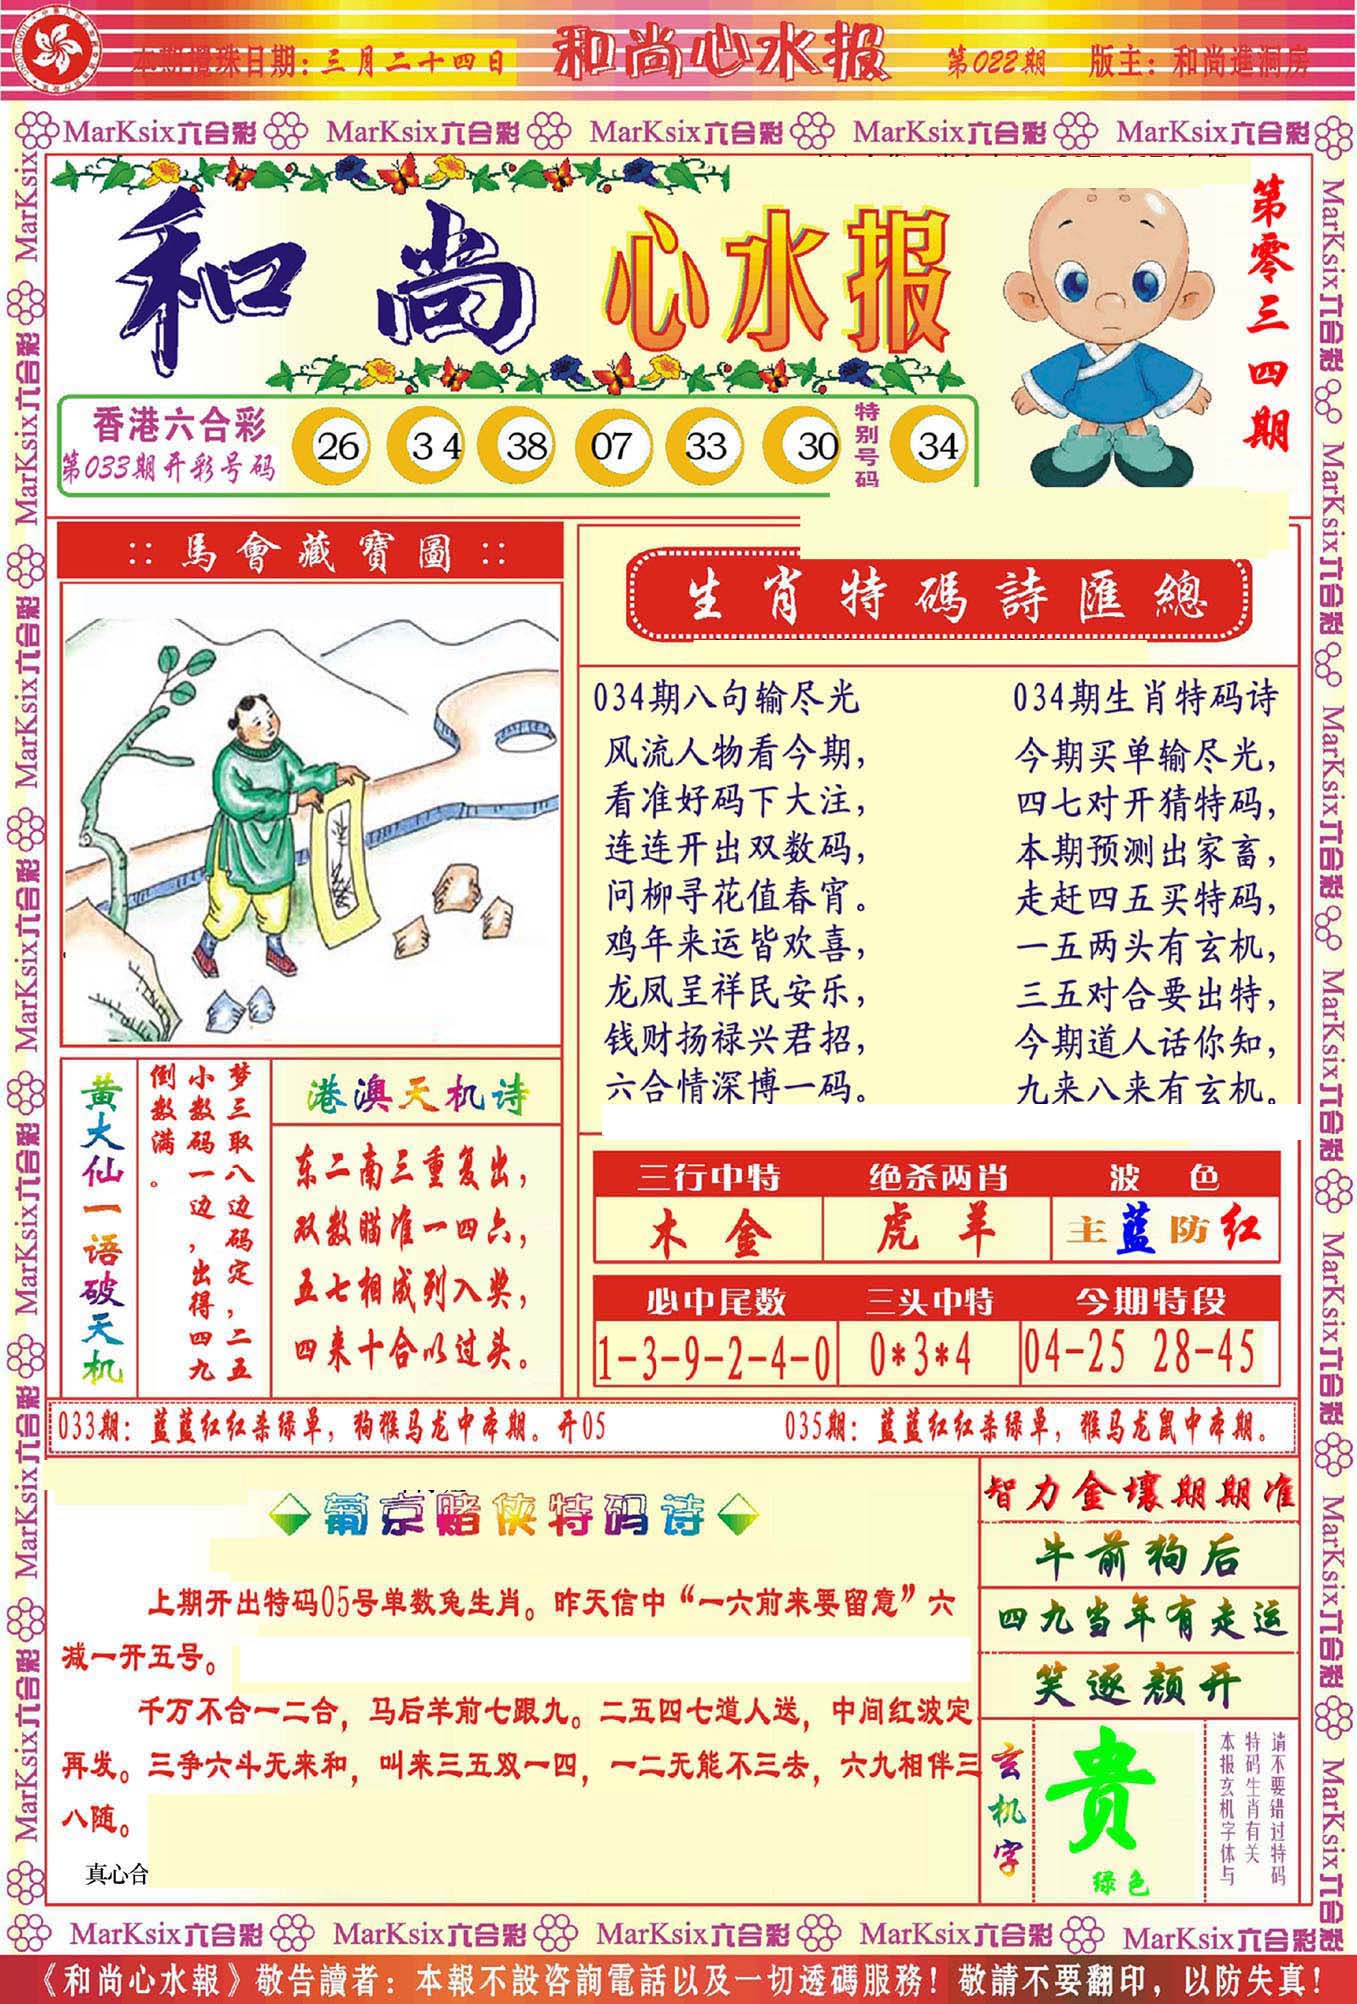 本期攪珠日期：三月二十四日
和尚心水报
第022期
版主：和尚進洞房
MarKsix六合彩 MarKsix六合彩 MarKsix六合彩 MarKsix六合彩 MarKsix六合彩
和尚心水报
第零三四期
香港六合彩
第033期开彩号码
26 34 38 07 33 30 特别号码 34
::馬會藏寶圖::
生肖特碼詩匯總
034期八句输尽光
风流人物看今期，
看准好码下大注，
连连开出双数码，
问柳寻花值春宵。
鸡年来运皆欢喜，
龙凤呈祥民安乐，
钱财扬禄兴君招，
六合情深博一码。
034期生肖特码诗
今期买单输尽光，
四七对开猜特码，
本期预测出家畜，
走赶四五买特码，
一五两头有玄机，
三五对合要出特，
今期道人话你知，
九来八来有玄机。
黄大仙一语破天机
梦三取八边码定，二五
小数码一边，出得四九
倒数满。
港澳天机诗
东二南三重复出，
双数瞄准一四六，
五七相成列入奖，
四来十合以过头。
三行中特 绝杀两肖 波色
木金 虎羊 主蓝防红
必中尾数 三头中特 今期特段
1-3-9-2-4-0 0*3*4 04-25 28-45
033期：蓝蓝红红杀绿单，狗猴马龙中本期。开05
035期：蓝蓝红红杀绿单，猴马龙鼠中本期。
葡京赌侠特码诗
上期开出特码05号单数兔生肖。昨天信中“一六前来要留意”六
减一开五号。
千万不合一二合，马后羊前七跟九。二五四七道人送，中间红波定
再发。三争六斗无来和，叫来三五双一四，一二无能不三去，六九相伴三
八随。
真心合
智力金壤期期准
牛前狗后
四九当年有走运
笑逐颜开
玄机字
贵
绿色
请不要错过特码
特码生肖有关
本报玄机字体与
MarKsix六合彩 MarKsix六合彩 MarKsix六合彩 MarKsix六合彩 MarKsix六合彩
《和尚心水報》敬告讀者：本報不設咨詢電話以及一切透碼服務！敬請不要翻印，以防失真！